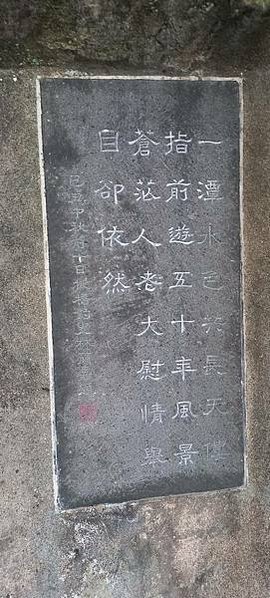 一潭水色共長天彈
指前遊五十年風景
蒼茫人老大慰情舉
目卻依然
己丑中秋前十日